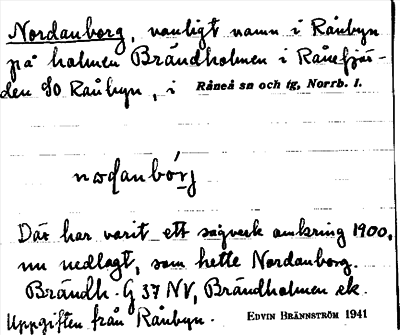 Nordanborg, vanligt namn i Råbyn
på holmen Brändholmen i Rånefjär-
den SO Råbyn, i Råneå sn och tg, Norrb. l.
nɷḍanbórg
Där har varit ett sågverk omkring 1900,
nu nedlagt, som hette Nordanborg.
Brändh. G 37 NV, Brändholmen ek.
Uppgiften från Råbyn. EDVIN BRÄNNSTRÖM 1941